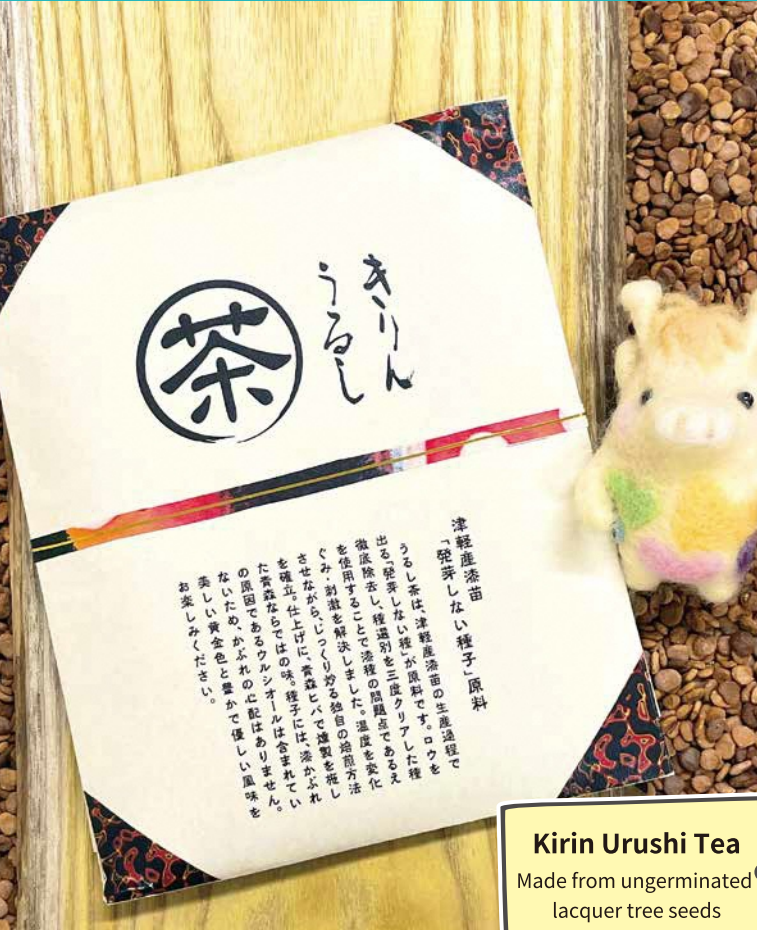 きりん
うるし
茶
津軽産漆苗
「発芽しない種子」原料
うるし茶は、津軽産漆苗の生産過程で
出る「発芽しない種」が原料です。ロウを
徹底除去し、種選別を三度クリアした種
を使用することで漆種の問題点であるえ
ぐみ・刺激を解決しました。温度を変化
させながら、じっくり炒る独自の焙煎方法
を確立。仕上げに、青森ヒバで燻製を施し
た青森ならではの味。種子には、漆かぶれ
の原因であるウルシオールは含まれてい
ないため、かぶれの心配はありません。
美しい黄金色と豊かで優しい風味を
お楽しみください。
Kirin Urushi Tea
Made from ungerminated
lacquer tree seeds